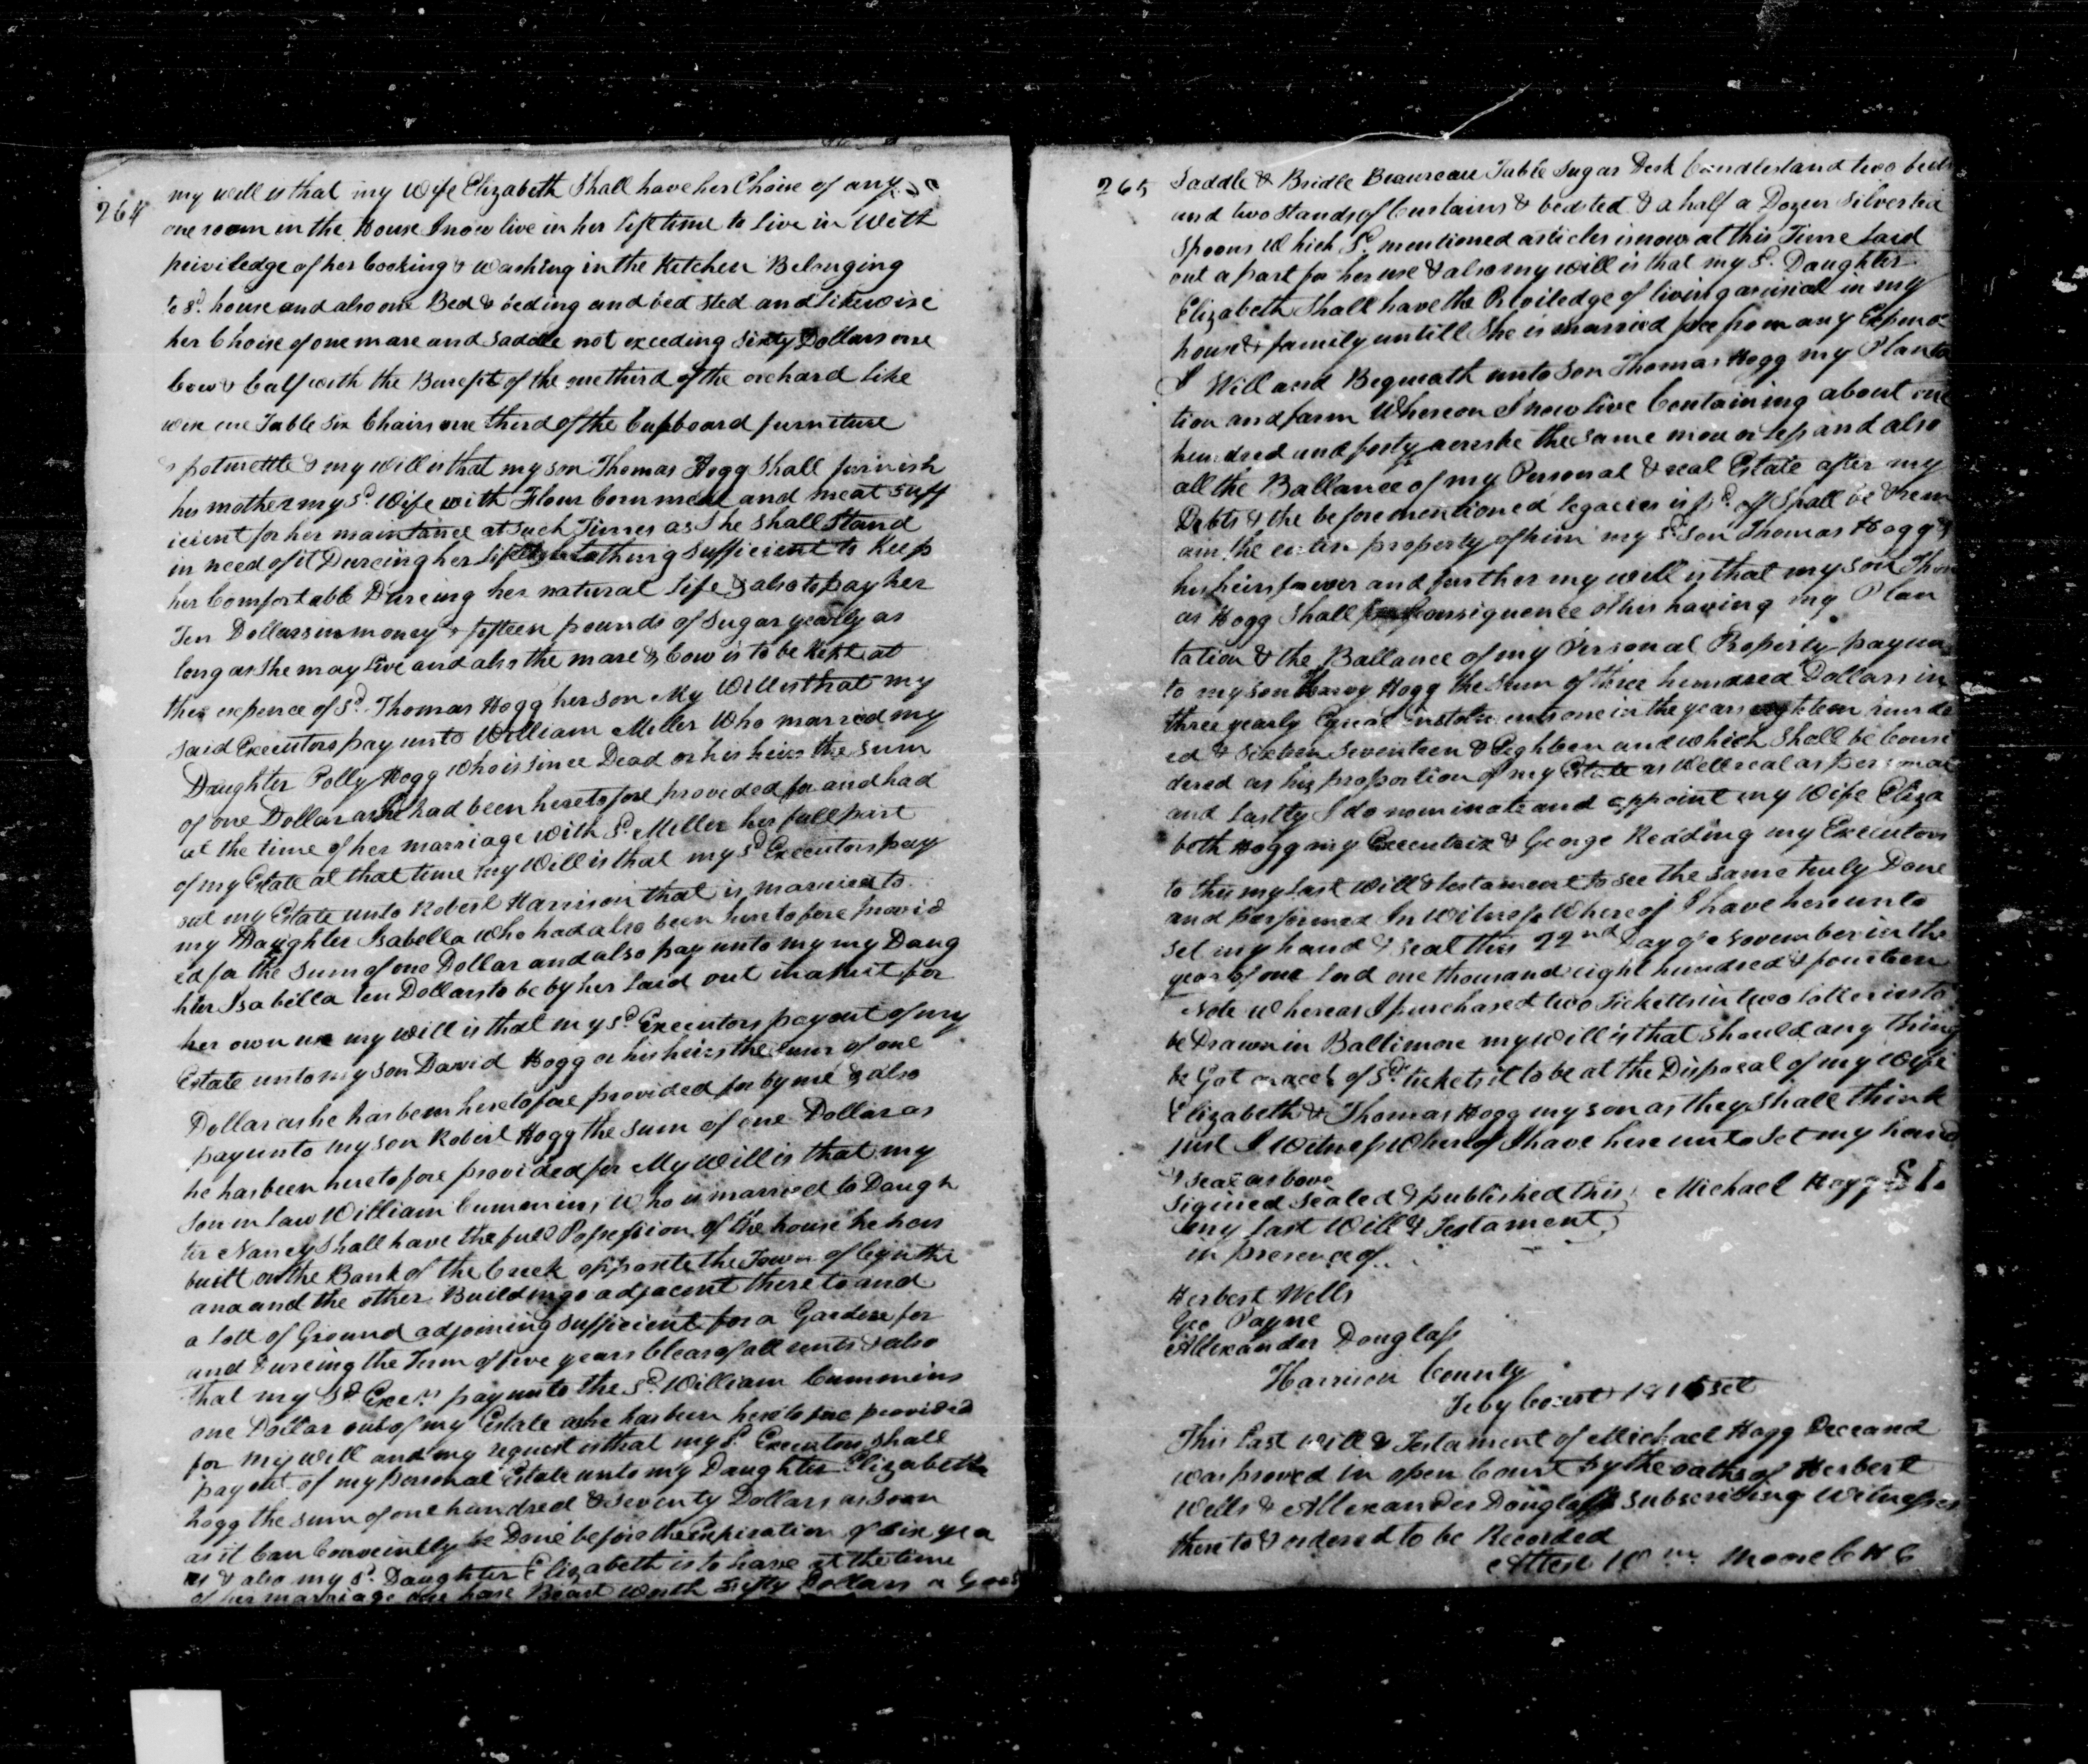 264
my will is that my Wife Elizabeth Shall have her Choise of any
one room in the House I now live in her lifetime to live in With
priviledge of her Cooking & Washing in the Kitchen Belonging
to sd. house and also one Bed & beding and bed sted and likewise
her Choise of one mare and Saddle not exceding Sixty Dollars one
Cow & Calf with the Benefit of the one third of the orchard like
wise one Table Six Chairs one third of the Cupboard furniture
& my will is that my son Thomas Hogg Shall furnish
his mother my Sd. Wife with Flour Corn meal and meat Suff
icient for her maintance at such Times as She Shall Stand
in need of it Dureing her life Clothing Sufficient to Keep
her Comfortable Dureing her natural life & also to pay her
Ten Dollars in money & fifteen pounds of Sugar yearly as
long as She may live and also the mare & Cow is to be Kept at
the expence of Sd. Thomas Hogg her son My Will is that my
Said Executors pay unto William Miller Who married my
Daughter Polly Hogg Who is since Dead or his heirs the sum
of one Dollar as She had been heretofore provided for and had
at the time of her marriage with Sd. Miller her full part
of my Estate at that time my Will is that my Sd Executors pay
out my Estate unto Robert Harrison that is married to
my Daughter Isabella who had also been heretofore provid
ed for the Sum of one Dollar and also pay unto my my Daug
hter Isabella ten Dollars to be by her laid out for
her own use my will is that my Sd Executors pay out of my
Estate unto my son David Hogg or his heirs the Sum of one
Dollar as he has been heretofore provided for by me & also
pay unto my son Robert Hogg the sum of one Dollar as
he has been heretofore provided for My Will is that my
Son in law William Cummins Who is married to Daugh
ter Nancy Shall have the full Possession of the house he has
built on the Bank of the Creek opposite the Town of Cynthi
ana and the other Buildings adjacent thereto and
a lott of Ground adjoining sufficient for a Garden for
and Dureing the Term of five years Clear of all rents & also
that my Sd Exers. pay unto the Sd. William Cummins
one Dollar out of my Estate as he has been heretofore provided
for my will and my request is that my Sd. Executors shall
pay out of my personal Estate unto my Daughter Elizabeth
Hogg the sum of one hundred & Seventy Dollars as soon
as it Can Conveniently be Done before the Expiration of Six yea
rs & also my Sd. Daughter Elizabeth is to have at the time
of her marriage one horse Beast Worth Fifty Dollars a Good
265
Saddle & Bridle Beaureau Table Sugar Desk Candlestand two beds
and two Stands of Curtains & bedsted & a half a Dozen Silver tea
Spoons Which Sd. mentioned articles is now at this Time laid
out a part for her use & also my will is that my Sd. Daughter
Elizabeth Shall have the Priviledge of living as usial in my
house & family untill She is married free from any Expence
I Will and Bequeath unto Son Thomas Hogg my Planta
tion and farm Whereon I now live Containing about one
hundred and forty acres be the same more or less and also
all the Ballance of my Personal & real Estate after my
Debts & the beforementioned legacies is pd. off Shall be & rem
ain the entire property of him my Sd Son Thomas Hogg &
his heirs forever and further my will is that my son Thom
as Hogg Shall Consiquence of his having my Plan
tation & the Ballance of my Personal Property pay un
to my son Harvy Hogg the Sum of three hundred Dollars in
three yearly Equeal Instolments one in the years eighteen hundr
ed & sixteen Seventeen & Eighteen and which Shall be Consi
dered as his proportion of my Estate as Well real as personal
and lastly I do nominate and appoint my Wife Eliza
beth Hogg my Executrix & George Redding my Executors
to this my last Will & testament to see the same truly Done
and performed In Witness Whereof I have hereunto
set my hand & seal this 22nd Day of November in the
year of our lord one thousand eight hundred & fourteen
Note Whereas I purchased two Ticketts in two lotteries to
be Drawn in Baltimore my Will is that Should any thing
be Got on acct of Sd. tickets it to be at the Disposal of my Wife
Elizabeth & Thomas Hogg my son as they Shall think
just I Witness Whereof I have hereunto Set my hand
& seal as bove
Sigined Sealed & published this Michael Hogg
my last Will & Testament
in presence of
Herbert Wells
Geo Payne
Allexander Douglass
Harrison County
Feby Court 1815 Sct
This last Will & Testament of Michael Hogg Deceasd
was proved in open Court by the oaths of Herbert
Wells & Allexander Douglass subscribing Witnesses
thereto & ordered to be Recorded
Attest Wm. Moore C H C